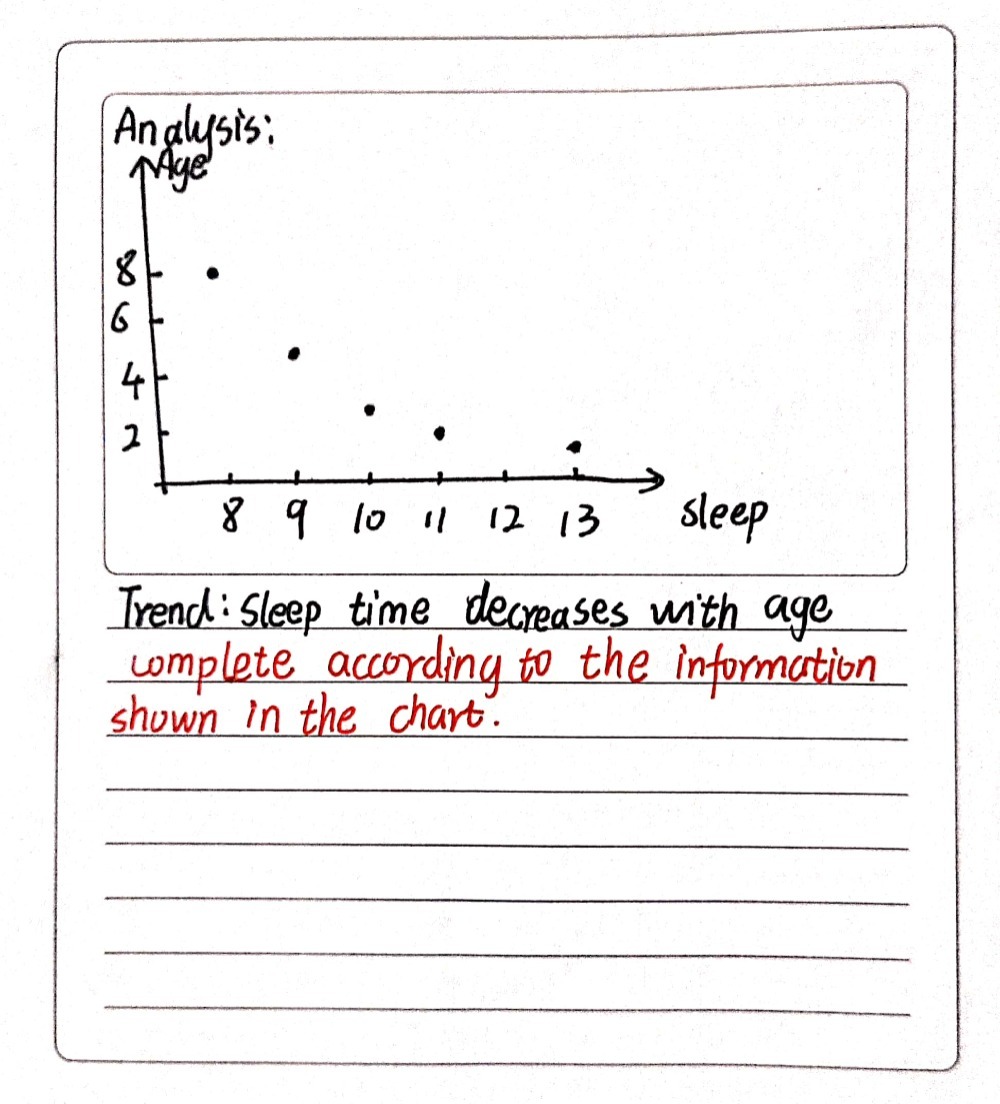 Analysis:
Age
8
6
4
2
8 9 10 11 12 13 sleep
Trend: Sleep time decreases with age
complete according to the information
shown in the chart.